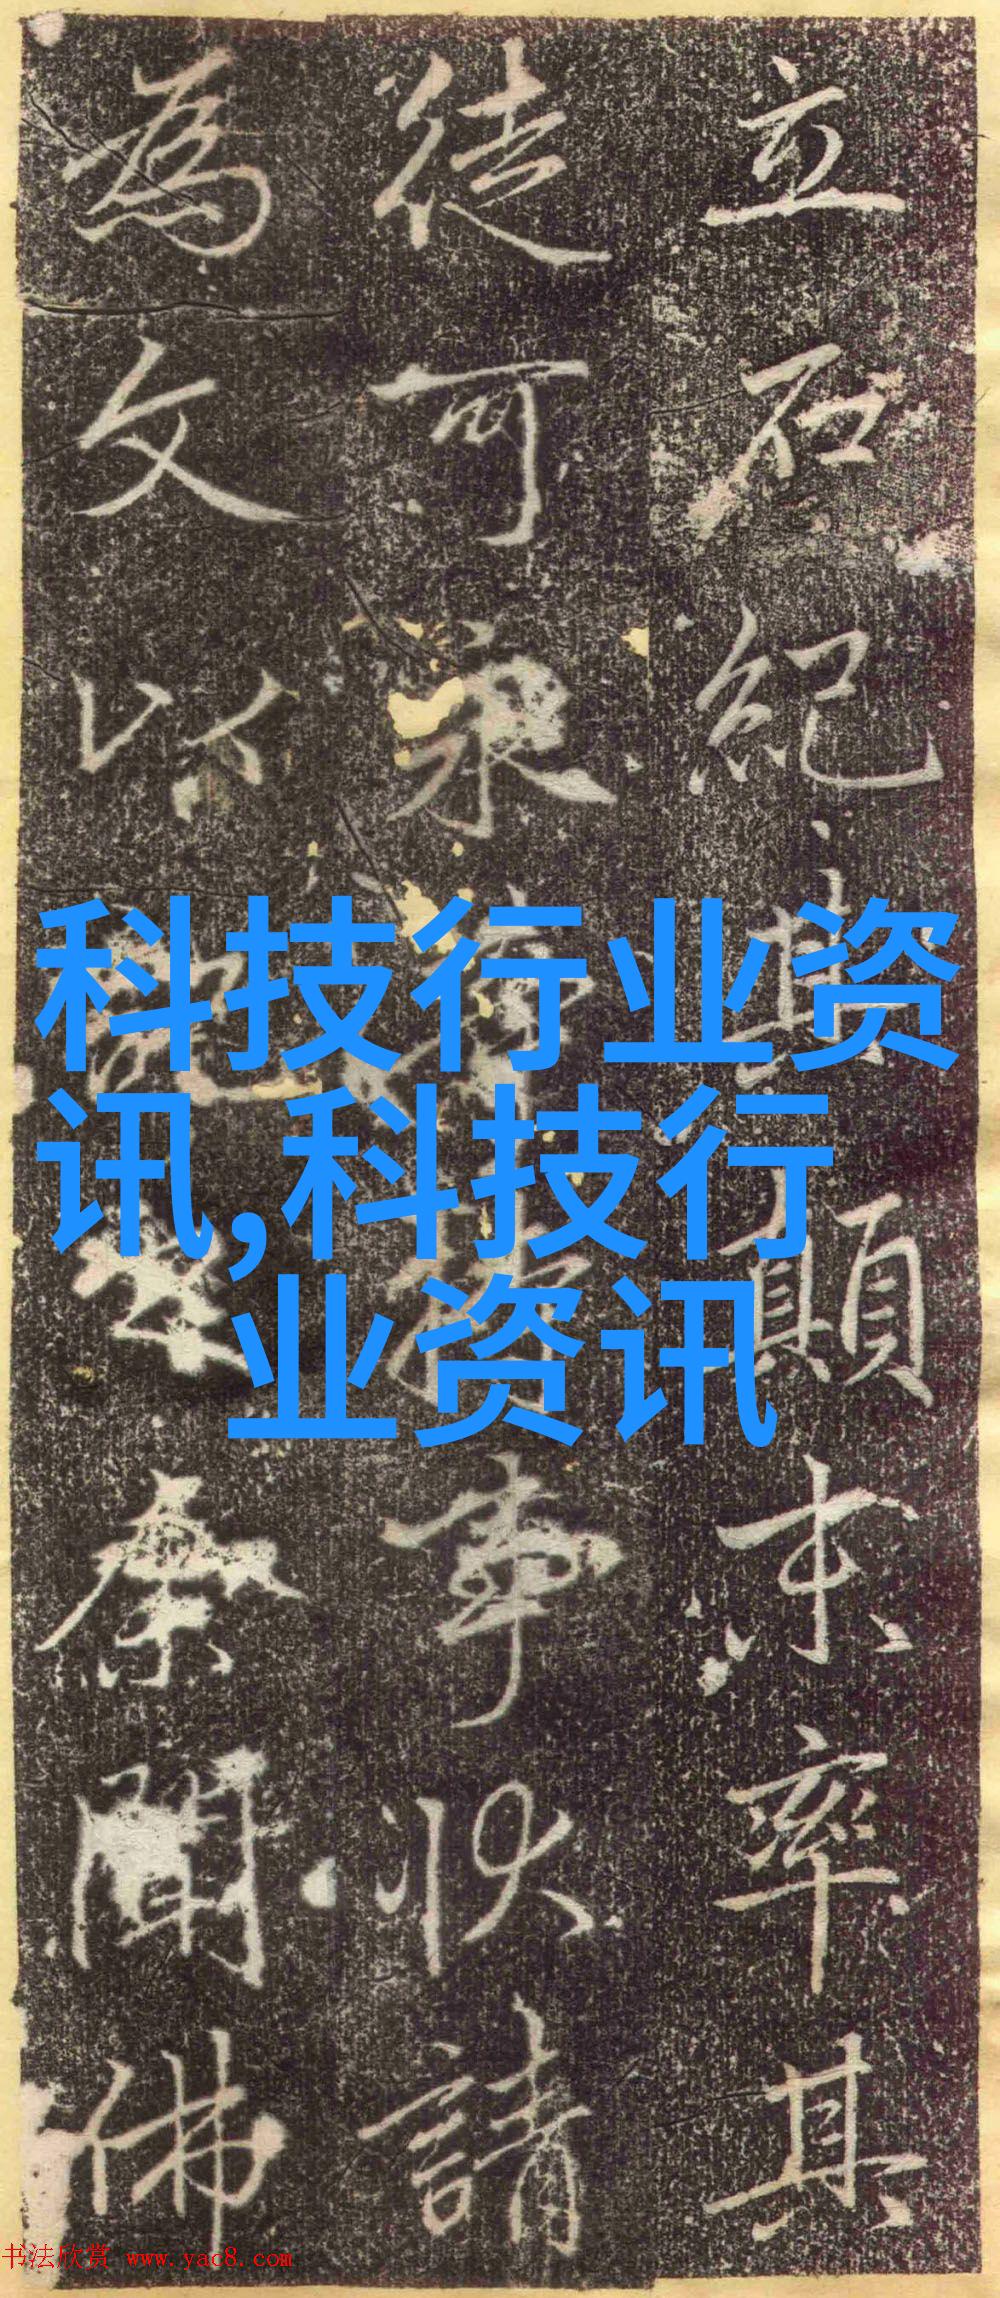 立石紀其顛末率其
徒可事狀請
為文以聞佛
科技行业资
讯,科技行
业资讯
书法欣赏 www.yac8.com